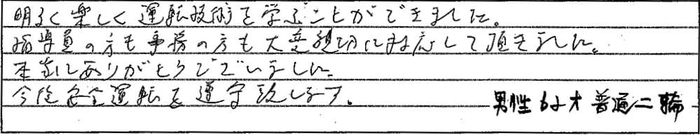 明るく楽しく運転技術を学ぶことができました。
指導員の方も事務の方も大変親切に対応して頂きました。
本当にありがとうございました。
今後安全運転を遵守致します。
男性 64才 普通二輪